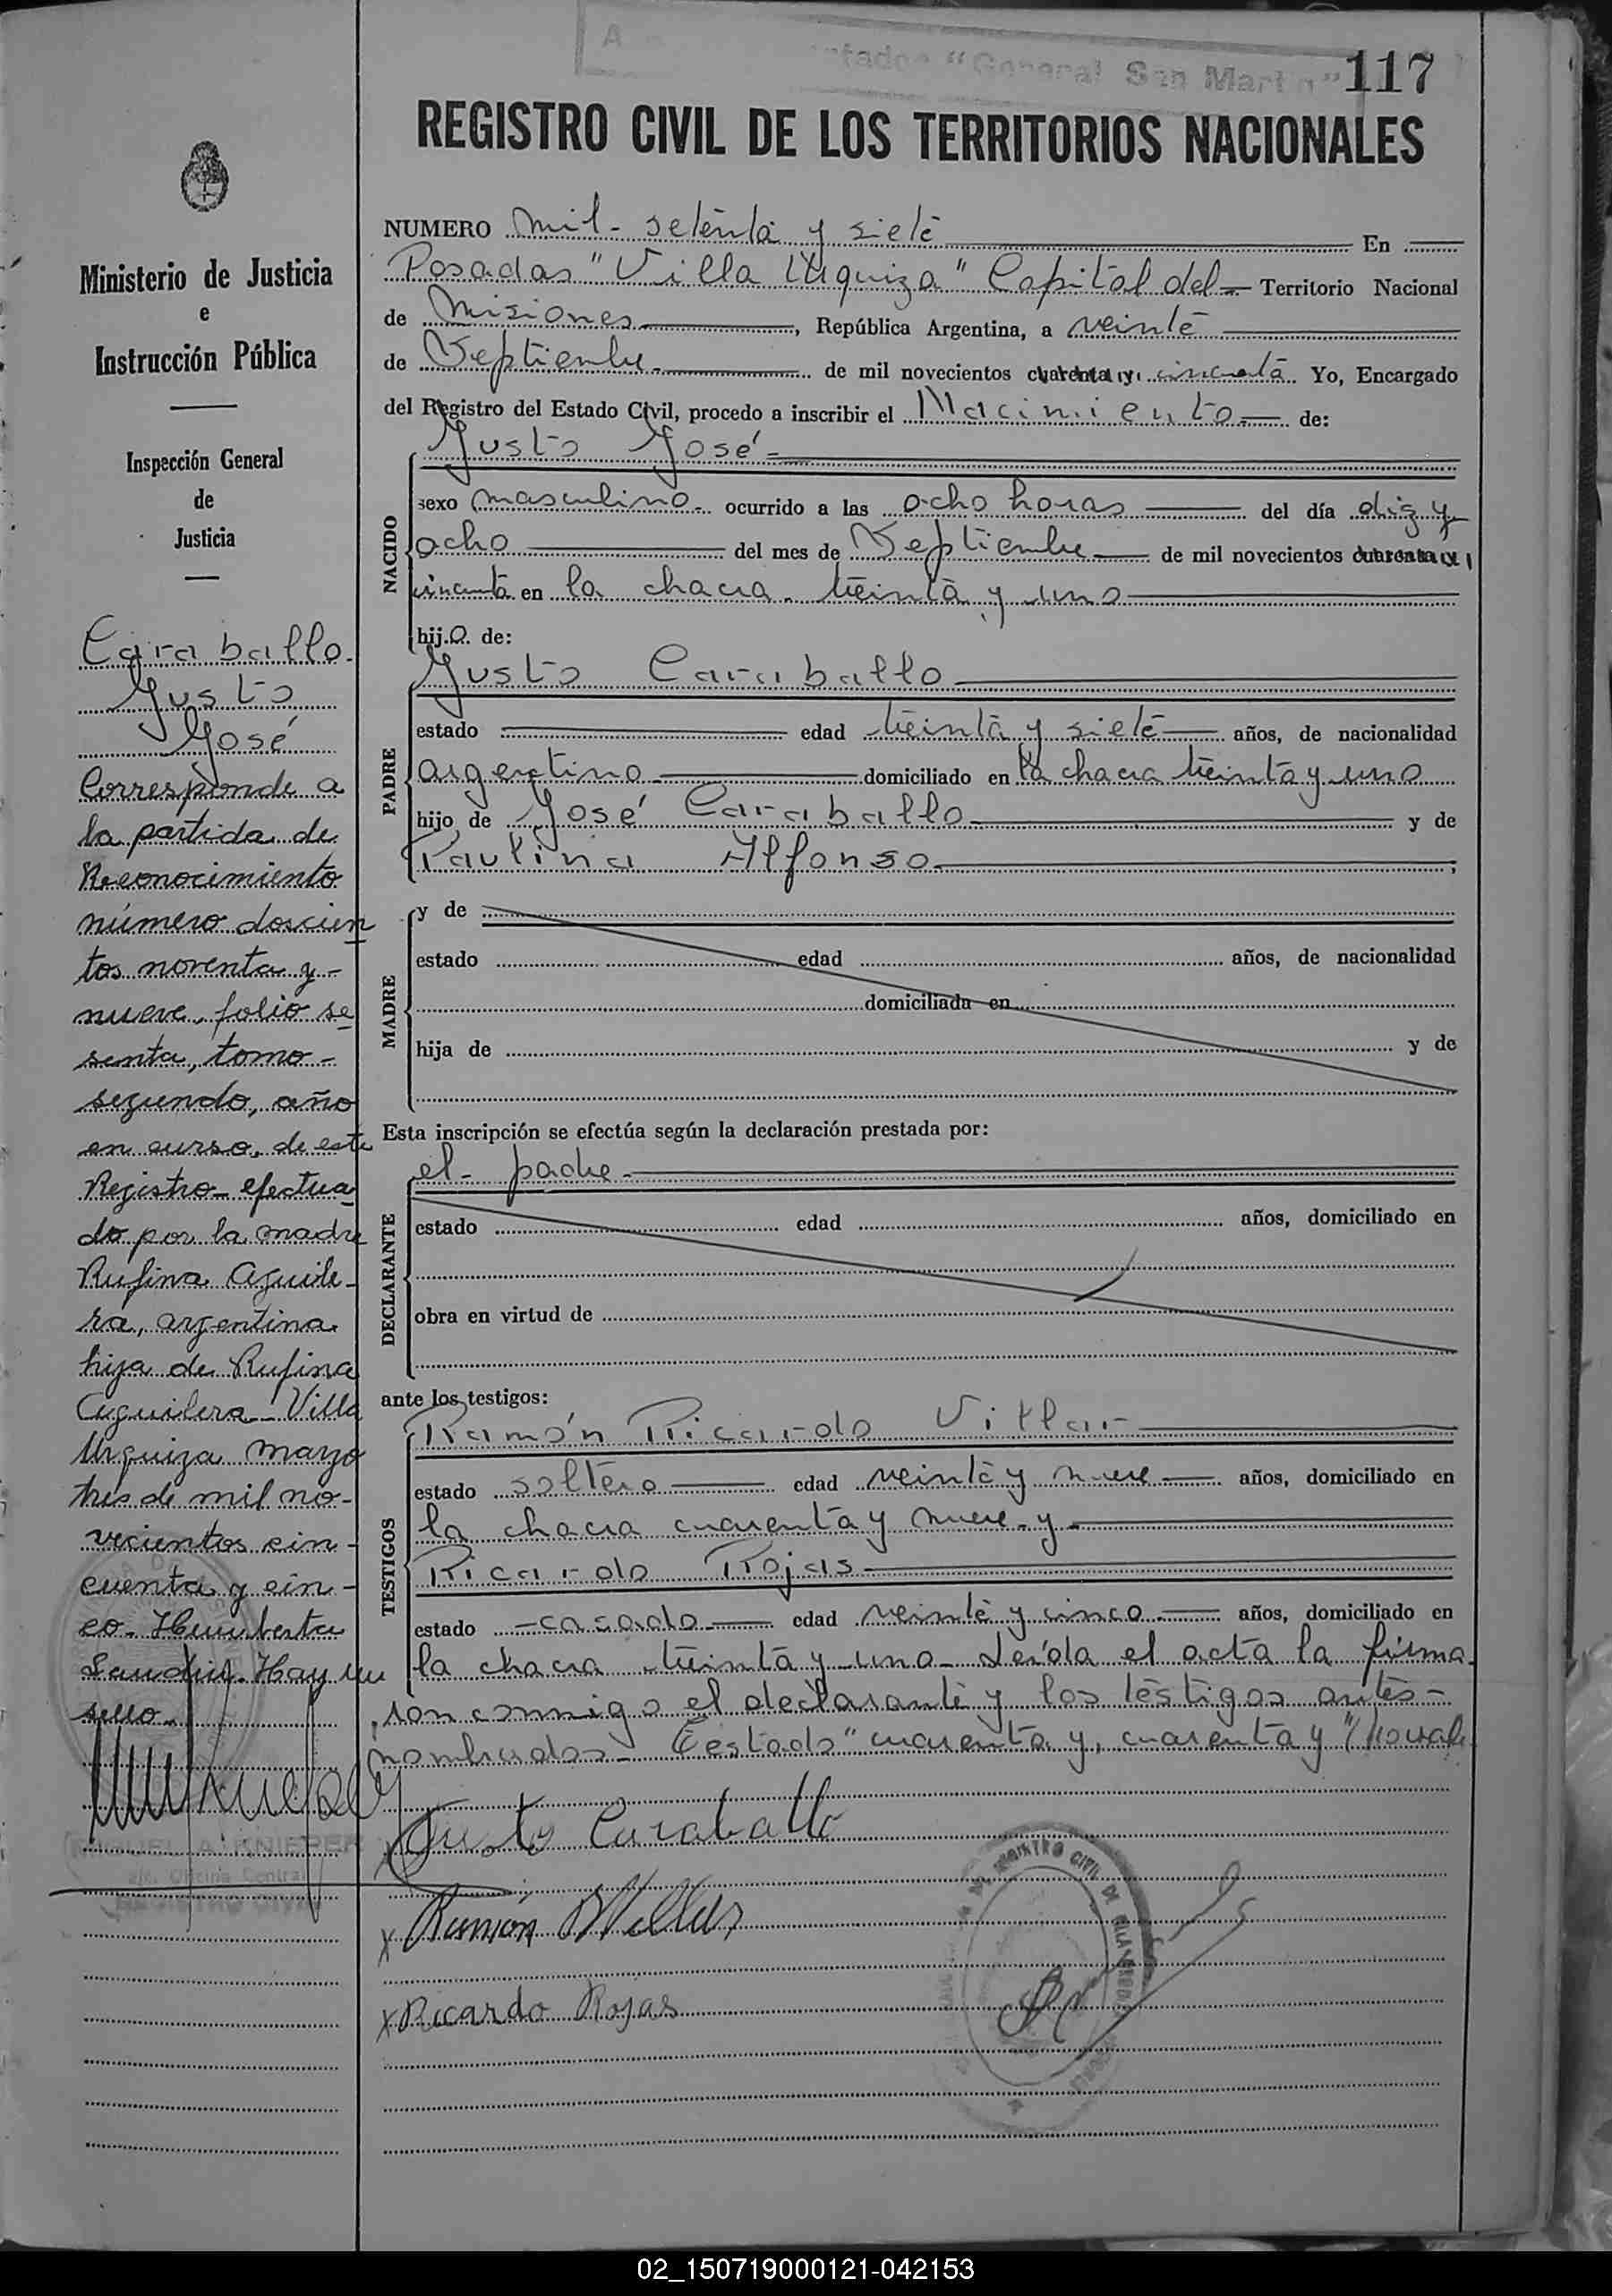 117
"General San Martin"
REGISTRO CIVIL DE LOS TERRITORIOS NACIONALES
Ministerio de Justicia
e
Instrucción Pública
Inspección General
de
Justicia
Caraballo
Justo
José
Corresponde a
la partida de
Reconocimiento
número doscien
tos noventa y
nueve, folio se
senta, tomo
segundo, año
en curso, de este
Registro efectua
do por la madre
Rufina Aguile
ra, argentina
hija de Rufina
Aguilera Villa
Urquiza marzo
tres de mil no-
vecientos cin-
cuenta y cin-
co. Humberto
Hay un
sello
MIGUEL A. KNIEPER
a/c. Oficina Central
REGISTRO CIVIL
NUMERO mil setenta y siete En
Posadas "Villa Urquiza" Capital del Territorio Nacional
de Misiones, República Argentina, a veinte
de Septiembre de mil novecientos cuarenta y cincuenta Yo, Encargado
del Registro del Estado Civil, procedo a inscribir el Nacimiento de:
NACIDO
Justo José
sexo masculino ocurrido a las ocho horas del día diez y
ocho del mes de Septiembre de mil novecientos cuarenta y
cincuenta en la chacra treinta y uno
hijo de:
PADRE
Justo Caraballo
estado edad treinta y siete años, de nacionalidad
argentino domiciliado en la chacra treinta y uno
hijo de José Caraballo y de
Paulina Alfonso;
MADRE
y de
estado edad años, de nacionalidad
domiciliada en
hija de y de
Esta inscripción se efectúa según la declaración prestada por:
DECLARANTE
el padre
estado edad años, domiciliado en
obra en virtud de
ante los testigos:
TESTIGOS
Ramón Ricardo Villar
estado soltero edad veinte y nueve años, domiciliado en
la chacra cuarenta y nueve y
Ricardo Rojas
estado casado edad veinte y cinco años, domiciliado en
la chacra treinta y uno Leída el acta la firma
ron conmigo el declarante y los testigos antes-
nombrados Testado "cuarenta y, cuarenta y" No vale
Justo Caraballo
x Ramón R Villar
x Ricardo Rojas
REGISTRO CIVIL DE
02_150719000121-042153